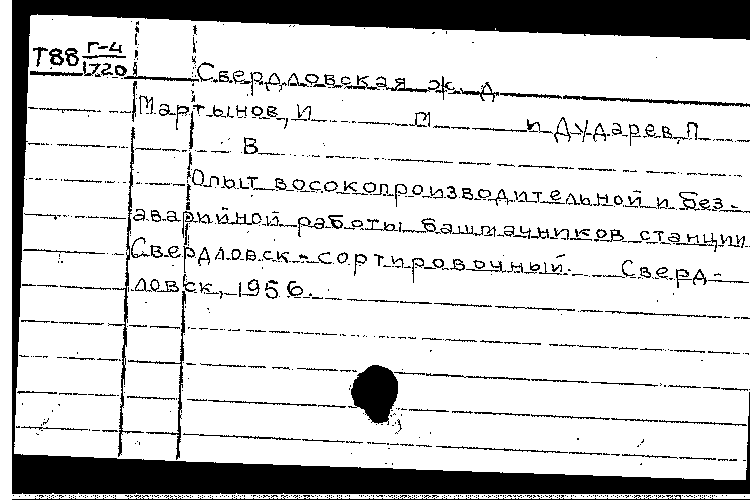 Т88 Г-4
1720
Свердловская ж. д
Мартынов, И М и Дударев, П
В
Опыт восокопроизводительной и без-
аварийной работы башмачников станции
Свердловск-сортировочный. Сверд-
ловск, 1956.